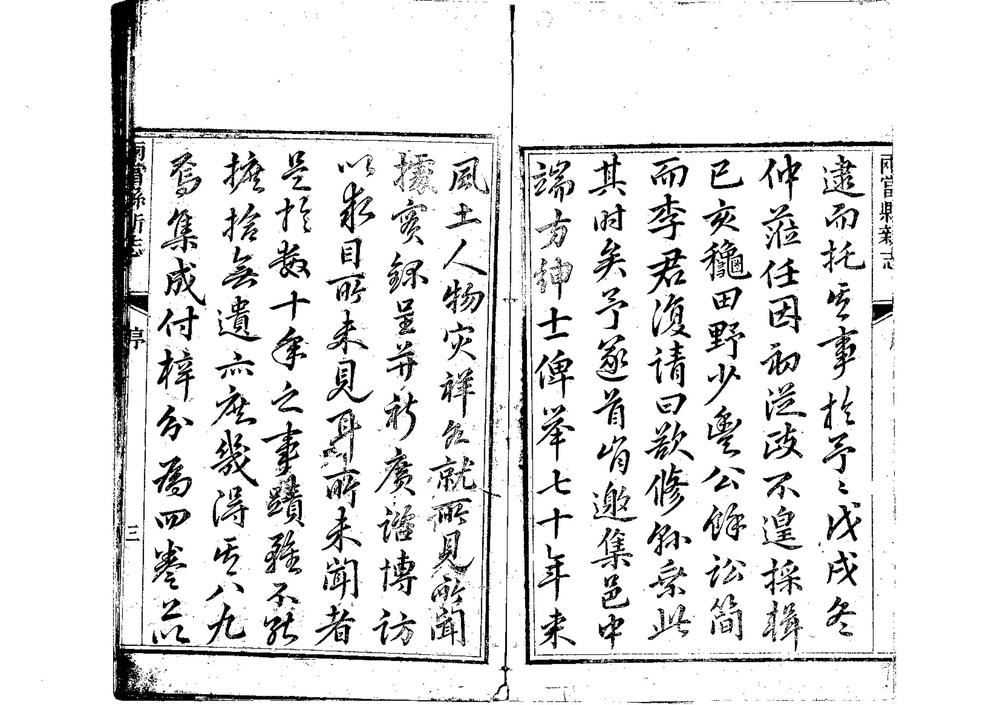 兩當縣新志
逮而托其事於予〻戊戌冬
仲蒞任因初從政不遑採輯
已亥穐田野少豊公餘訟簡
而李君復請曰欲修縣乘此
其时矣予遂首肯邀集邑中
端方紳士俾举七十年来
風土人物灾祥名就所見所聞
據实錄呈并祈廣諮博访
以求目所未見耳所未闻者
是於数十年之事蹟雖不能
摭拾無遺亦庶幾得其八九
焉集成付梓分為四巻并以
兩當縣新志
序
三